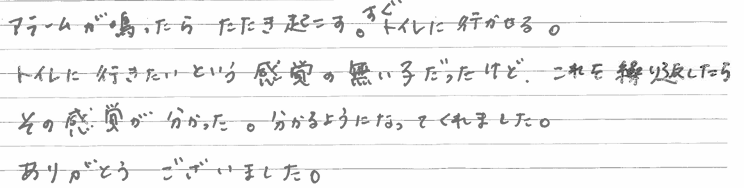 アラームが鳴ったら たたき起こす。すぐトイレに行かせる。
トイレに行きたいという感覚の無い子だったけど、これを繰り返したら
その感覚が分かった。分かるようになってくれました。
ありがとう ございました。